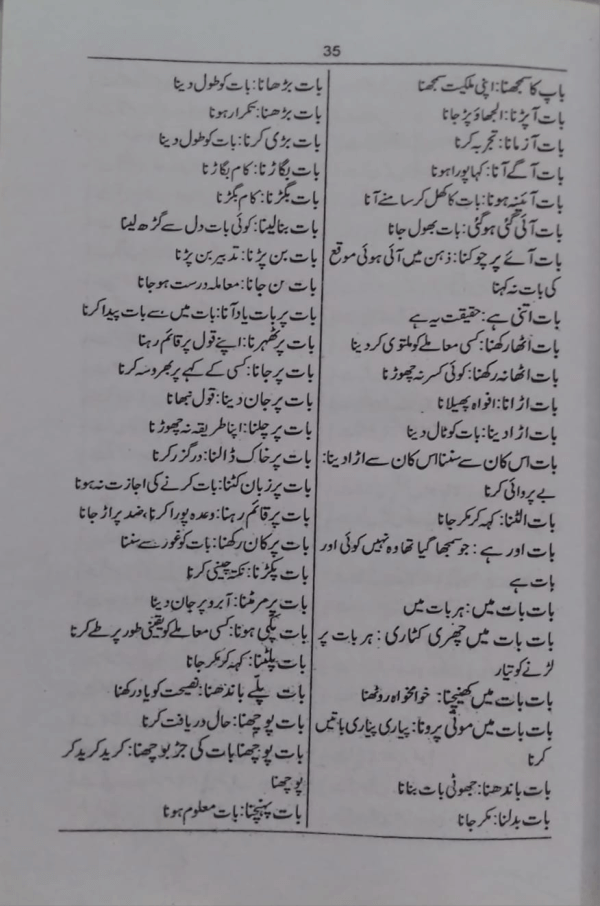 35
باپ کا سمجھنا: اپنی ملکیت سمجھنا
بات آپڑنا: الجھاؤ پڑ جانا
بات آزمانا: تجربہ کرنا
بات آگے آنا: کہا پورا ہونا
بات آئینہ ہونا: بات کا کھل کر سامنے آنا
بات آئی گئی ہوگئی: بات بھول جانا
بات آئے پر چوکنا: ذہن میں آئی ہوئی موقع
کی بات نہ کہنا
بات اتنی ہے: حقیقت یہ ہے
بات اٹھا رکھنا: کسی معاملے کو ملتوی کر دینا
بات اٹھا نہ رکھنا: کوئی کسر نہ چھوڑنا
بات اڑانا: افواہ پھیلانا
بات اڑا دینا: بات کو ٹال دینا
بات اس کان سے سننا اس کان سے اڑا دینا:
بے پروائی کرنا
بات الٹنا: کہہ کر مکر جانا
بات اور ہے: جو سمجھا گیا تھا وہ نہیں کوئی اور
بات ہے
بات بات میں: ہر بات میں
بات بات میں چھری کٹاری: ہر بات پر
لڑنے کو تیار
بات بات میں کھنچنا: خوامخواہ روٹھنا
بات بات میں موتی پرونا: پیاری پیاری باتیں
کرنا
بات باندھنا: جھوٹی بات بنانا
بات بدلنا: مکر جانا
بات بڑھانا: بات کو طول دینا
بات بڑھنا: تکرار ہونا
بات بڑی کرنا: بات کو طول دینا
بات بگاڑنا: کام بگاڑنا
بات بگڑنا: کام بگڑنا
بات بنا لینا: کوئی بات دل سے گڑھ لینا
بات بن پڑنا: تدبیر بن پڑنا
بات بن جانا: معاملہ درست ہو جانا
بات پر بات یاد آنا: بات میں سے بات پیدا کرنا
بات پر ٹھہرنا: اپنے قول پر قائم رہنا
بات پر جانا: کسی کے کہے پر بھروسہ کرنا
بات پر جان دینا: قول نبھانا
بات پر چلنا: اپنا طریقہ نہ چھوڑنا
بات پر خاک ڈالنا: درگزر کرنا
بات پر زبان کٹنا: بات کرنے کی اجازت نہ ہونا
بات پر قائم رہنا: وعدہ پورا کرنا، ضد پر اڑ جانا
بات پر کان رکھنا: بات کو غور سے سننا
بات پکڑنا: نکتہ چینی کرنا
بات پر مرمٹنا: آبرو پر جان دینا
بات پکی ہونا: کسی معاملے کو یقینی طور پر طے کرنا
بات پلٹنا: کہہ کو مکر جانا
بات پلے باندھنا: نصیحت کو یاد رکھنا
بات پوچھنا: حال دریافت کرنا
بات پوچھنا بات کی جڑ پوچھنا: کرید کرید کر
پوچھنا
بات پہنچنا: بات معلوم ہونا